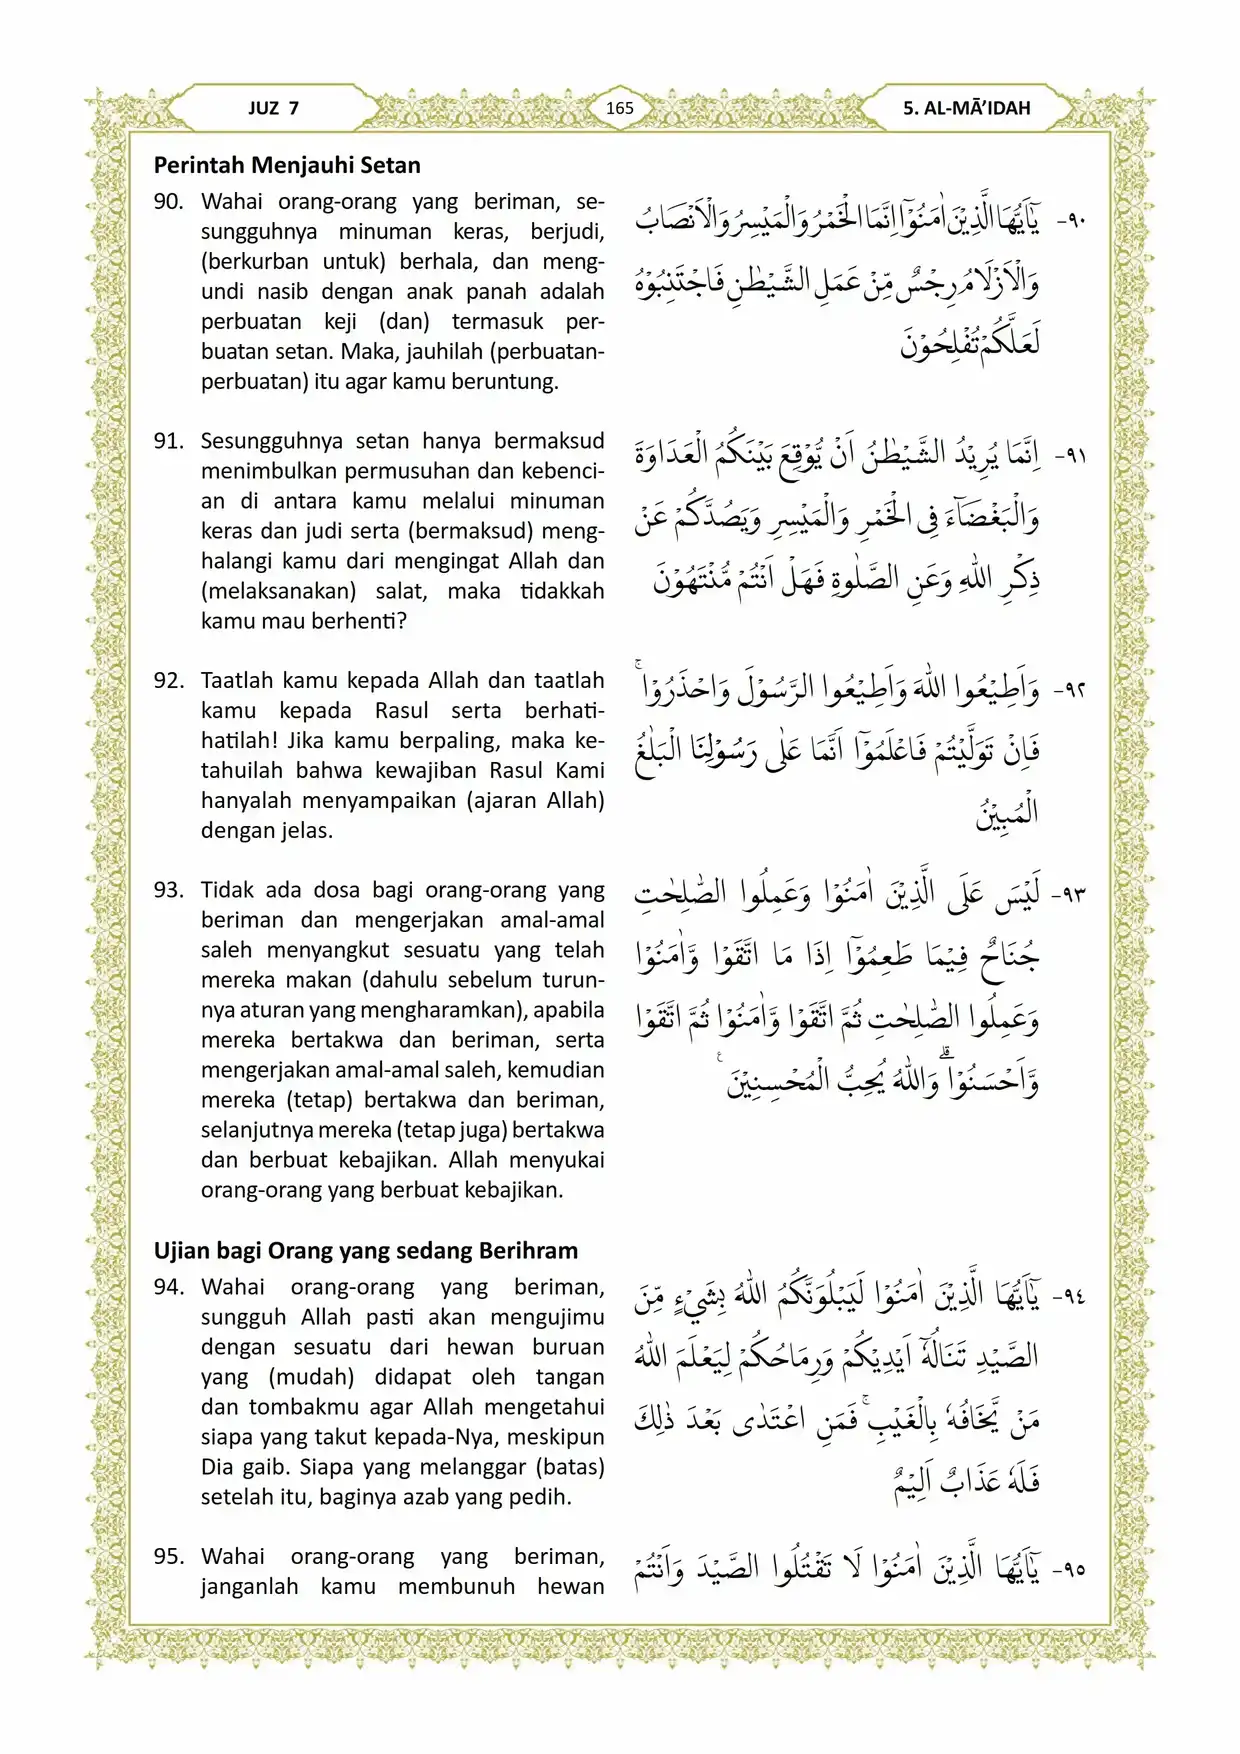 JUZ 7
165
5. AL-MĀ’IDAH
Perintah Menjauhi Setan
90. Wahai orang-orang yang beriman, se-
sungguhnya minuman keras, berjudi,
(berkurban untuk) berhala, dan meng-
undi nasib dengan anak panah adalah
perbuatan keji (dan) termasuk per-
buatan setan. Maka, jauhilah (perbuatan-
perbuatan) itu agar kamu beruntung.
٩٠- يٰٓاَيُّهَا الَّذِيْنَ اٰمَنُوْٓا اِنَّمَا الْخَمْرُ وَالْمَيْسِرُ وَالْاَنْصَابُ
وَالْاَزْلَامُ رِجْسٌ مِّنْ عَمَلِ الشَّيْطٰنِ فَاجْتَنِبُوْهُ
لَعَلَّكُمْ تُفْلِحُوْنَ
91. Sesungguhnya setan hanya bermaksud
menimbulkan permusuhan dan kebenci-
an di antara kamu melalui minuman
keras dan judi serta (bermaksud) meng-
halangi kamu dari mengingat Allah dan
(melaksanakan) salat, maka tidakkah
kamu mau berhenti?
٩١- اِنَّمَا يُرِيْدُ الشَّيْطٰنُ اَنْ يُّوْقِعَ بَيْنَكُمُ الْعَدَاوَةَ
وَالْبَغْضَاۤءَ فِى الْخَمْرِ وَالْمَيْسِرِ وَيَصُدَّكُمْ عَنْ
ذِكْرِ اللّٰهِ وَعَنِ الصَّلٰوةِ فَهَلْ اَنْتُمْ مُّنْتَهُوْنَ
92. Taatlah kamu kepada Allah dan taatlah
kamu kepada Rasul serta berhati-
hatilah! Jika kamu berpaling, maka ke-
tahuilah bahwa kewajiban Rasul Kami
hanyalah menyampaikan (ajaran Allah)
dengan jelas.
٩٢- وَاَطِيْعُوا اللّٰهَ وَاَطِيْعُوا الرَّسُوْلَ وَاحْذَرُوْا ۚ
فَاِنْ تَوَلَّيْتُمْ فَاعْلَمُوْٓا اَنَّمَا عَلٰى رَسُوْلِنَا الْبَلٰغُ
الْمُبِيْنُ
93. Tidak ada dosa bagi orang-orang yang
beriman dan mengerjakan amal-amal
saleh menyangkut sesuatu yang telah
mereka makan (dahulu sebelum turun-
nya aturan yang mengharamkan), apabila
mereka bertakwa dan beriman, serta
mengerjakan amal-amal saleh, kemudian
mereka (tetap) bertakwa dan beriman,
selanjutnya mereka (tetap juga) bertakwa
dan berbuat kebajikan. Allah menyukai
orang-orang yang berbuat kebajikan.
٩٣- لَيْسَ عَلَى الَّذِيْنَ اٰمَنُوْا وَعَمِلُوا الصّٰلِحٰتِ
جُنَاحٌ فِيْمَا طَعِمُوْٓا اِذَا مَا اتَّقَوْا وَّاٰمَنُوْا
وَعَمِلُوا الصّٰلِحٰتِ ثُمَّ اتَّقَوْا وَّاٰمَنُوْا ثُمَّ اتَّقَوْا
وَّاَحْسَنُوْا ۗ وَاللّٰهُ يُحِبُّ الْمُحْسِنِيْنَ ࣖ
Ujian bagi Orang yang sedang Berihram
94. Wahai orang-orang yang beriman,
sungguh Allah pasti akan mengujimu
dengan sesuatu dari hewan buruan
yang (mudah) didapat oleh tangan
dan tombakmu agar Allah mengetahui
siapa yang takut kepada-Nya, meskipun
Dia gaib. Siapa yang melanggar (batas)
setelah itu, baginya azab yang pedih.
٩٤- يٰٓاَيُّهَا الَّذِيْنَ اٰمَنُوْا لَيَبْلُوَنَّكُمُ اللّٰهُ بِشَيْءٍ مِّنَ
الصَّيْدِ تَنَالُهٗٓ اَيْدِيْكُمْ وَرِمَاحُكُمْ لِيَعْلَمَ اللّٰهُ
مَنْ يَّخَافُهٗ بِالْغَيْبِۚ فَمَنِ اعْتَدٰى بَعْدَ ذٰلِكَ
فَلَهٗ عَذَابٌ اَلِيْمٌ
95. Wahai orang-orang yang beriman,
janganlah kamu membunuh hewan
٩٥- يٰٓاَيُّهَا الَّذِيْنَ اٰمَنُوْا لَا تَقْتُلُوا الصَّيْدَ وَاَنْتُمْ